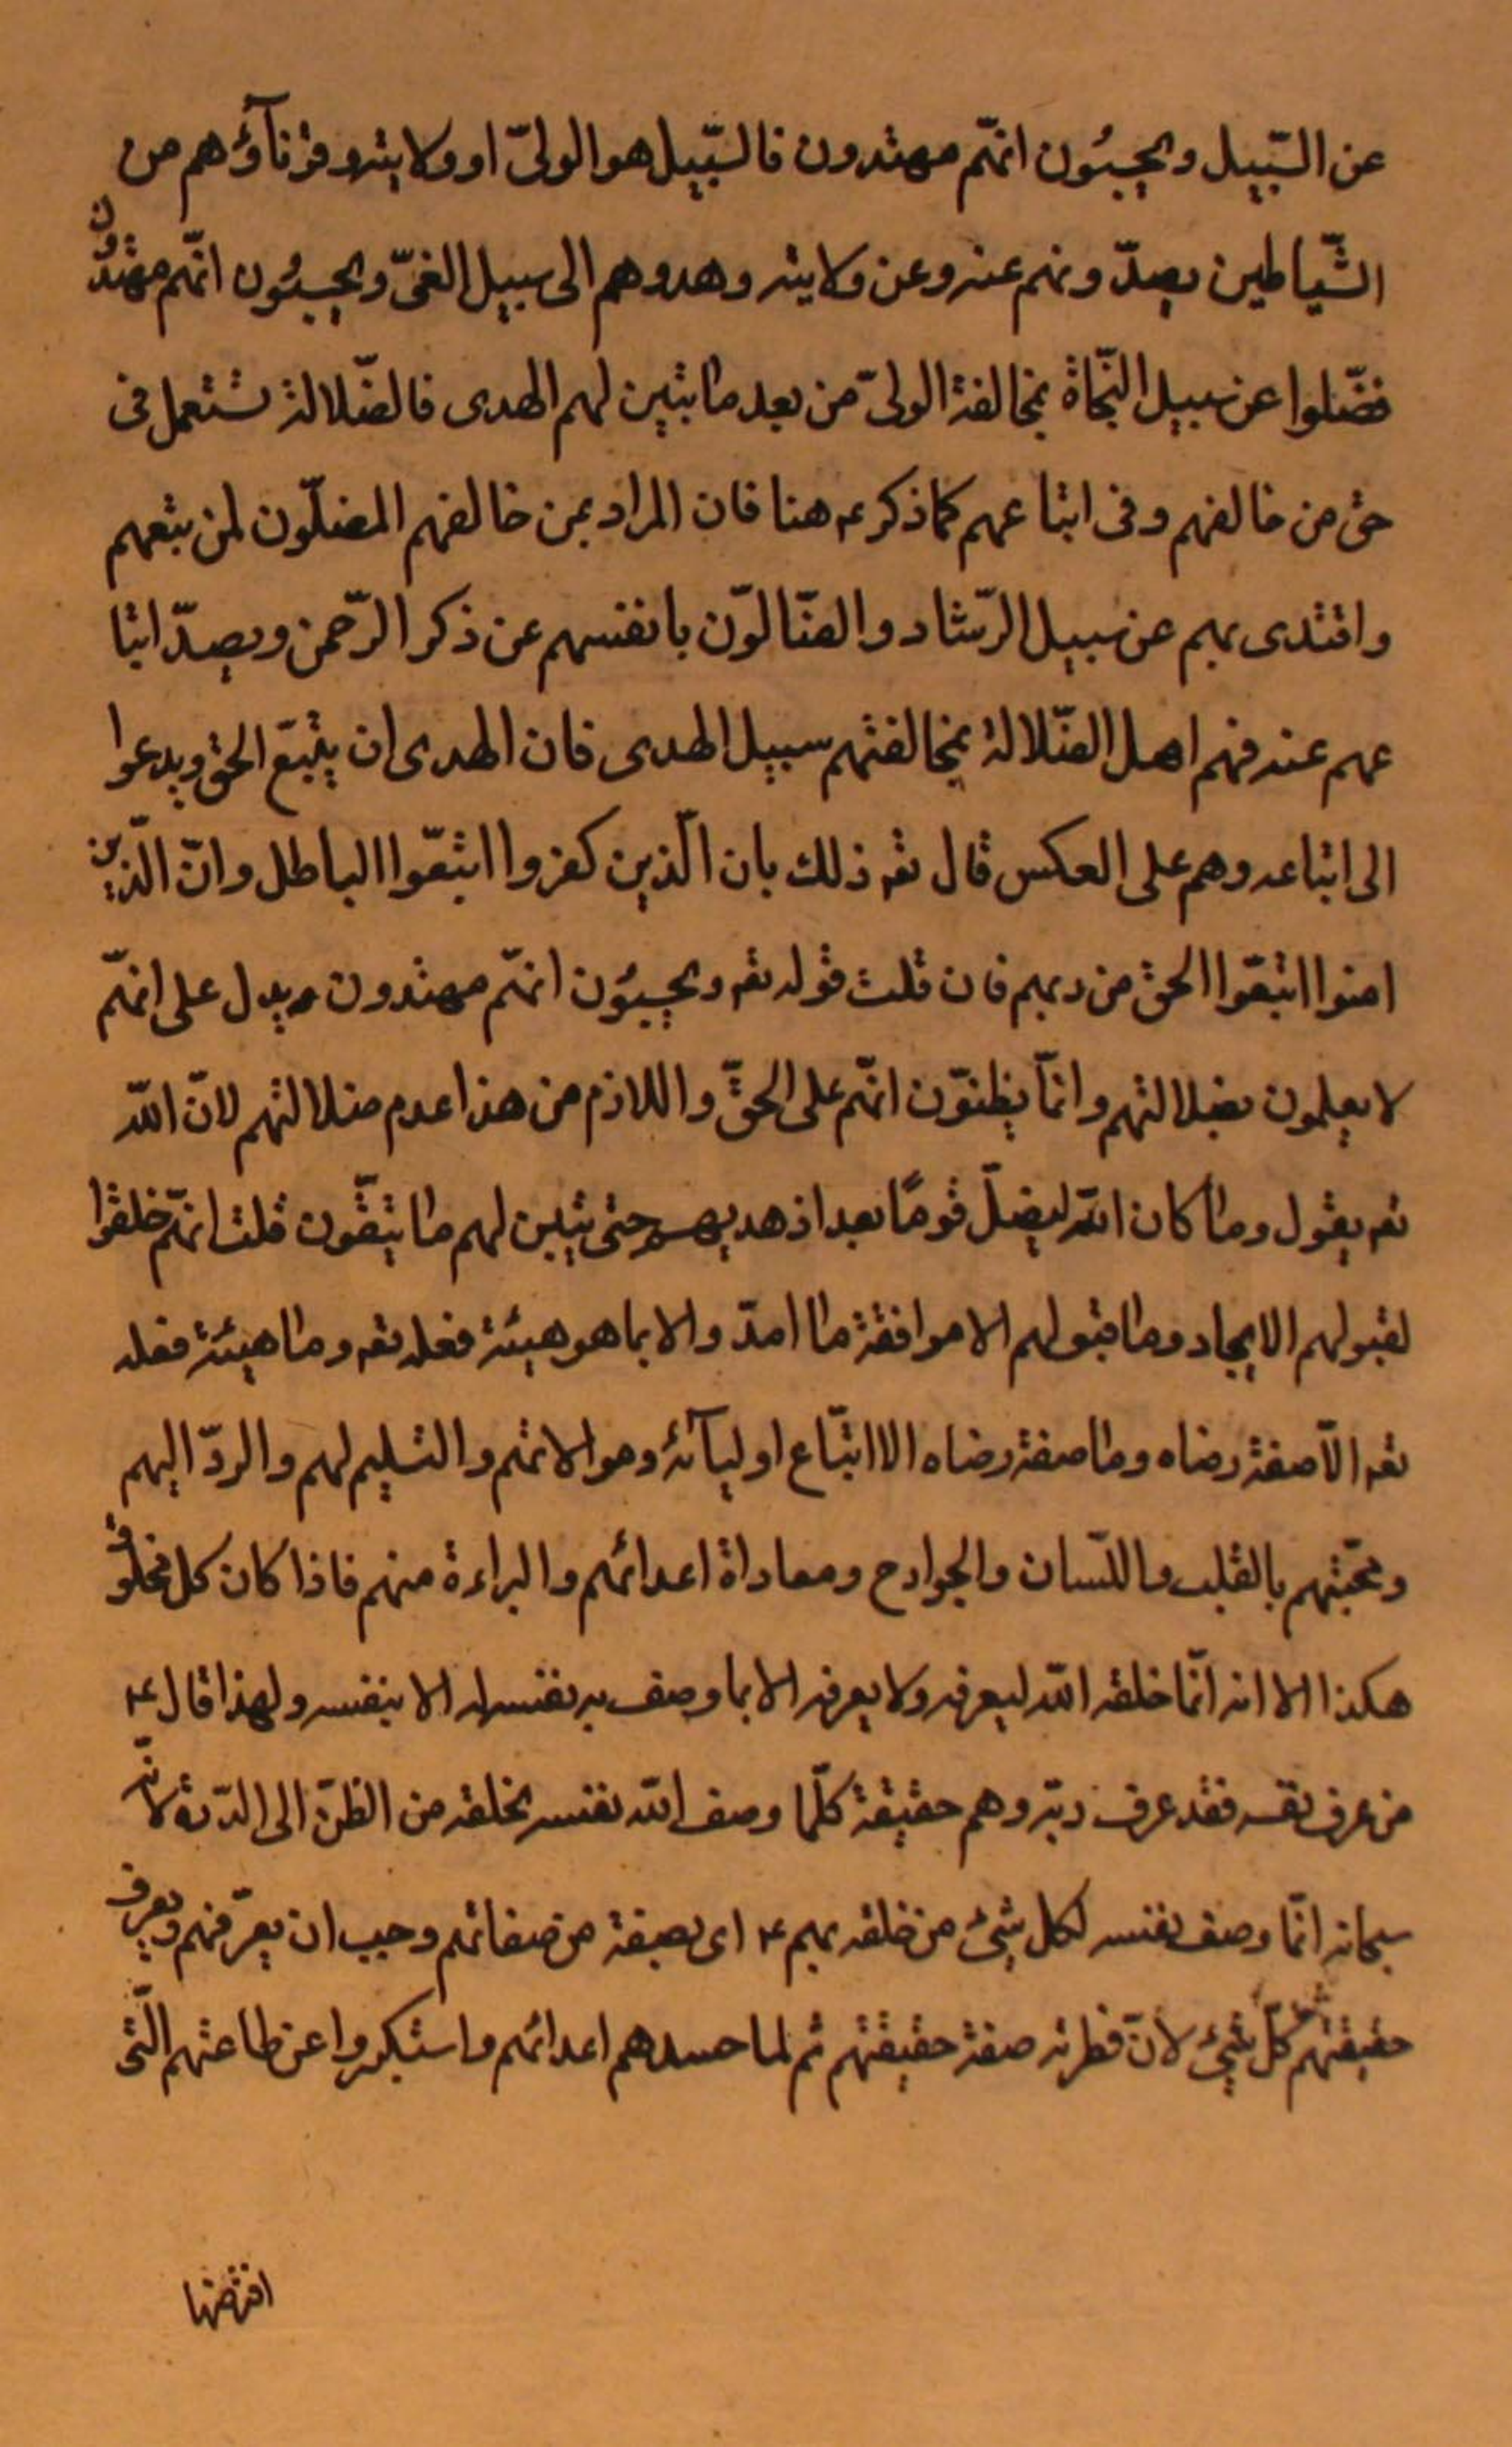 عن السّبيل ويحسبُون انّهم مهتدون فالسّبيل هو الولىّ او ولايته وقرنآؤهم من
الشّياطين يصدّونهم عنه وعن ولايته وهدوهم الى سبيل الغىّ ويحسبُون انّهم مهتدون
فضّلوا عن سبيل النّجاة بمخالفة الولىّ من بعد ما تبين لهم الهدى فالضّلالة تستعمل فى
حق من خالفهم وفى اتباعهم كما ذكر ع هنا فان المراد بمن خالفهم المضلّون لمن يتبعهم
واقتدى بهم عن سبيل الرّشاد والضّالوّن بانفسهم عن ذكر الرّحمن وبصدّ اتبا
عهم عنه فهم اهل الضّلالة بمخالفتهم سبيل الهدى فان الهدى ان يتّبع الحق ويدعوا
الى اتباعه وهم على العكس قال تعه ذلك بان الّذين كفروا اتبعّوا الباطل وانّ الّذين
امنوا اتبعّوا الحق من ربهم فان قلت قوله تعه ويحسبُون انّهم مهتدون يدل على انّهم
لا يعلمون بضلالتهم وانمّا يظنوّن انّهم على الحقّ واللازم من هذا عدم ضلالتهم لانّ اللّه
تعه يقول وما كان اللّه ليضلّ قومًا بعد اذ هديهم حتى يتبين لهم ما يتّقون قلت انّهم خلقوا
لقبولهم الايجاد وما قبولهم الا موافقة ما امدّوا الا بما هو هيئة فعله تعه وما هيئة فعله
تعه الّا صفة رضاه وما صفة رضاه الا اتبّاع اوليآئه وهو الايتم والتسليم لهم والردّ اليهم
ومحبّتهم بالقلب واللّسان والجوارح ومعاداة اعدائهم والبراءة منهم فاذا كان كل مخلوق
هكذا الا انه انّما خلقه اللّه ليعرفه ولا يعرفه الا بما وصف به نفسه له الا بنفسه ولهذا قال ع
من عرف نفسه فقد عرف ربّه وهم حقيقة كلّما وصف اللّه نفسه لخلقه من الى الدّرة لانّه
سبحانه انّما وصف نفسه لكل شئ من خلقه بهم ع اى بصفة من صفاتهم وجب ان يعرّفهم ويعرف
حقيقتهم كلّ شئ لانّ فطرته صفة حقيقتهم ثم لما حسدهم اعدائهم واستكبروا عن طاعتهم الّتى
افترضها